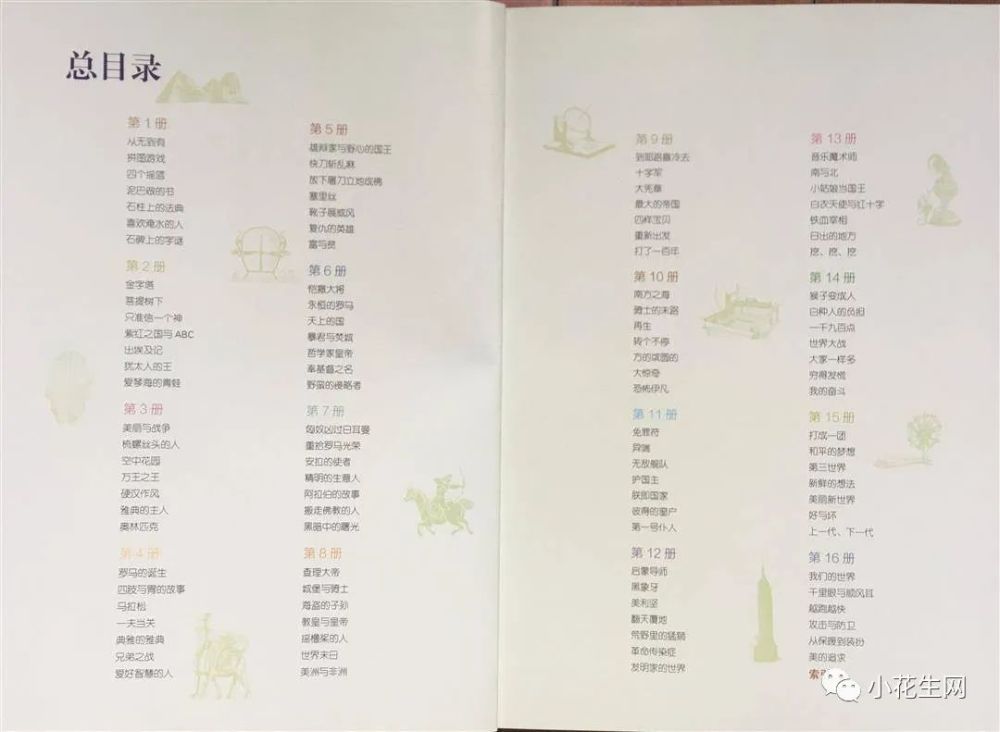 总目录
第1册
从无到有
拼图游戏
四个摇篮
泥巴做的书
石柱上的法典
喜欢淹水的人
石碑上的字谜
第2册
金字塔
菩提树下
只准信一个神
紫红之国与ABC
出埃及记
犹太人的王
爱琴海的青蛙
第3册
美丽与战争
梳螺丝头的人
空中花园
万王之王
硬汉作风
雅典的主人
奥林匹克
第4册
罗马的诞生
四肢与胃的故事
马拉松
一夫当关
典雅的雅典
兄弟之战
爱好智慧的人
第5册
雄辩家与野心的国王
快刀斩乱麻
放下屠刀立地成佛
塞里丝
靴子展威风
复仇的英雄
富与贫
第6册
恺撒大将
永恒的罗马
天上的国
暴君与焚城
哲学家皇帝
奉基督之名
野蛮的侵略者
第7册
匈奴凶过日耳曼
重拾罗马光荣
安拉的使者
精明的生意人
阿拉伯的故事
搬走佛教的人
黑暗中的曙光
第8册
查理大帝
城堡与骑士
海盗的子孙
教皇与皇帝
摇橹桨的人
世界末日
美洲与非洲
第9册
到耶路撒冷去
十字军
大宪章
最大的帝国
四样宝贝
重新出发
打了一百年
第10册
南方之海
骑士的末路
再生
转个不停
方的或圆的
大惊奇
恐怖伊凡
第11册
免罪符
异端
无敌舰队
护国主
朕即国家
彼得的窗户
第一号仆人
第12册
启蒙导师
黑象牙
美利坚
翻天覆地
荒野里的猛狮
革命传染症
发明家的世界
第13册
音乐魔术师
南与北
小姑娘当国王
白衣天使与红十字
铁血宰相
日出的地方
挖、挖、挖
第14册
猴子变成人
白种人的负担
一千九百点
世界大战
大家一样多
穷得发慌
我的奋斗
第15册
打成一团
和平的梦想
第三世界
新鲜的想法
美丽新世界
好与坏
上一代、下一代
第16册
我们的世界
千里眼与顺风耳
越跑越快
攻击与防卫
从保暖到装扮
美的追求
索
小花生网